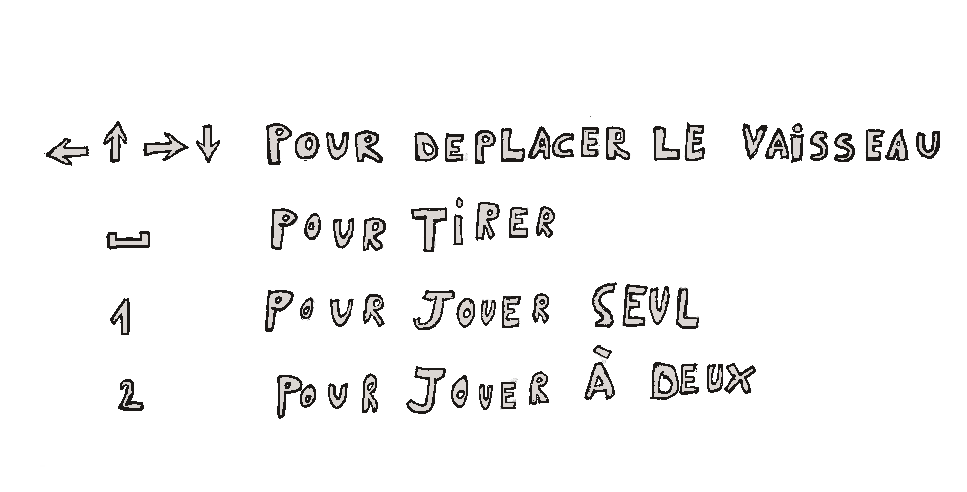 ← ↑ → ↓ POUR DEPLACER LE VAiSSEAU
⎵ POUR TiRER
1 POUR JOUER SEUL
2 POUR JOUER À DEUX